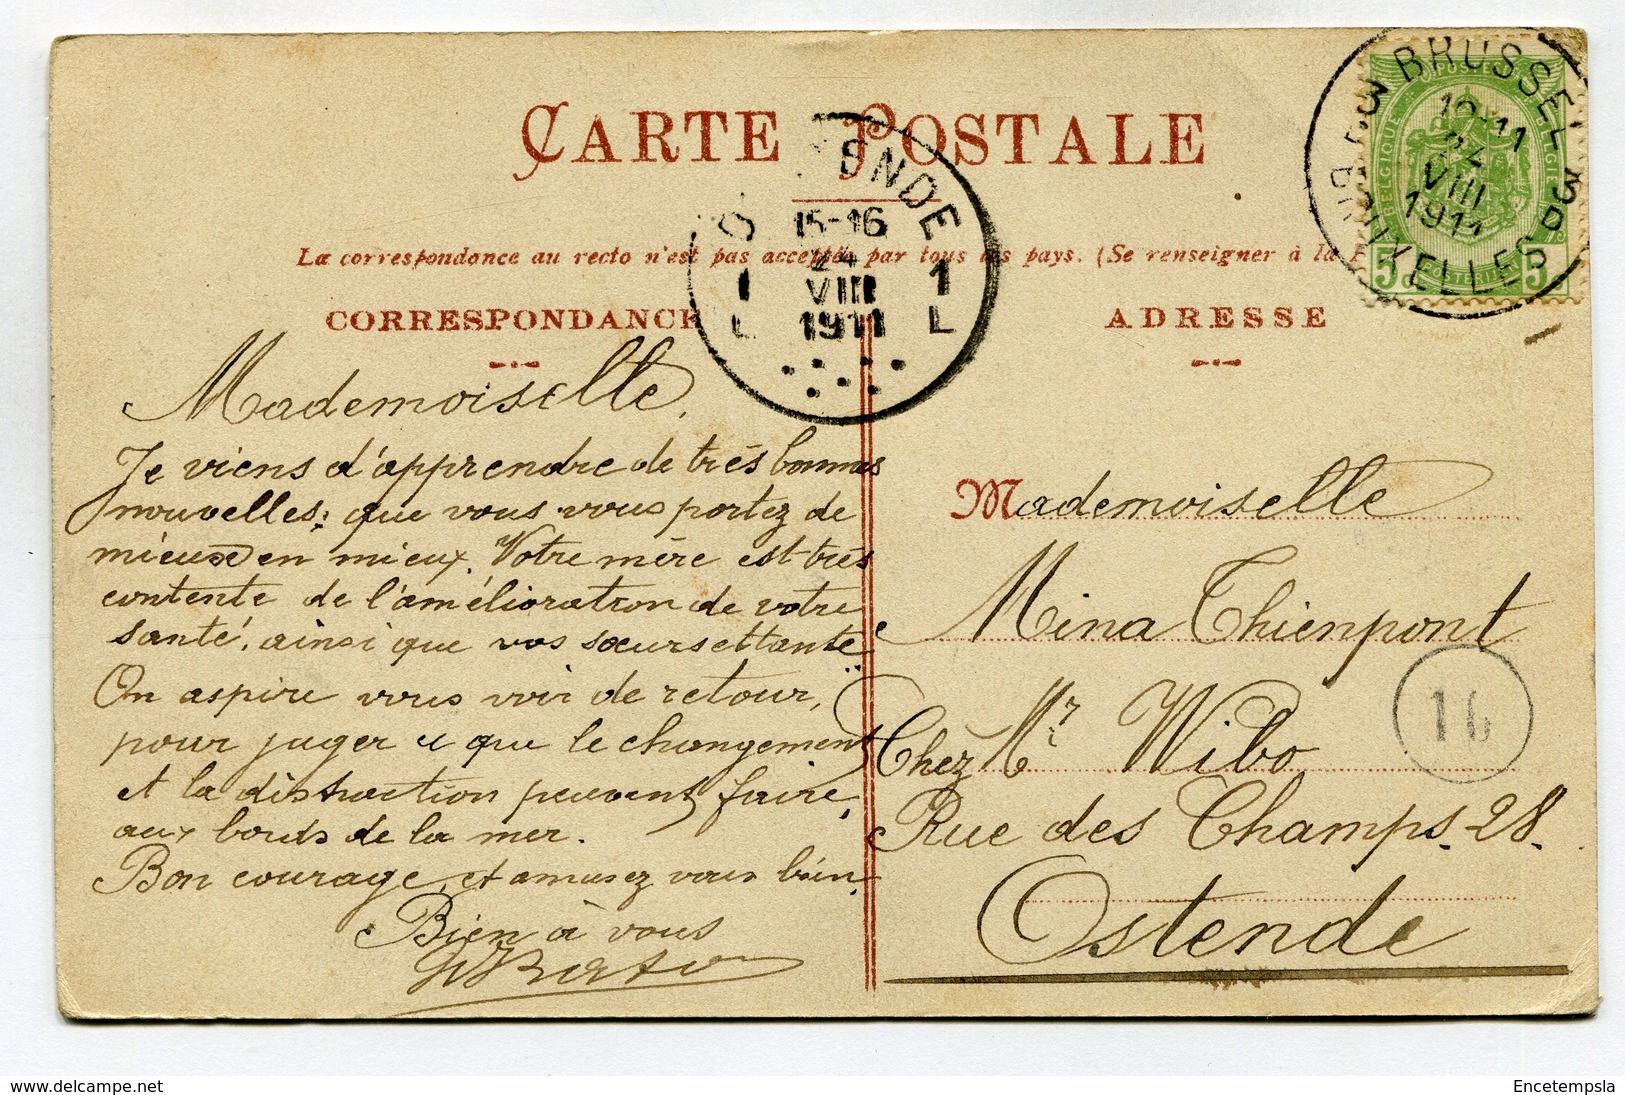 CARTE POSTALE
La correspondance au recto n'est pas acceptée par tous les pays. (Se renseigner à la
CORRESPONDANCE
ADRESSE
BRUSSEL 3
BRUXELLES
VIII
1911
15-16
24
VIII
1911
1 1
L L
BELGIQUE
POSTES
5 5
Mademoiselle,
Je viens d'apprendre de très bonnes
nouvelles; que vous vous portez de
mieux en mieux. Votre mère est très
contente de l'amélioration de votre
santé, ainsi que vos sœurs et tante
On aspire vous voir de retour,
pour juger ce que le changement
et la distraction peuvent faire,
aux bords de la mer.
Bon courage, et amusez vous bien.
Bien à vous
Mademoiselle
Mina Thienpont
Chez Mr Wibo
Rue des Champs. 28.
Ostende
16
delcampe.net
Encetempsla